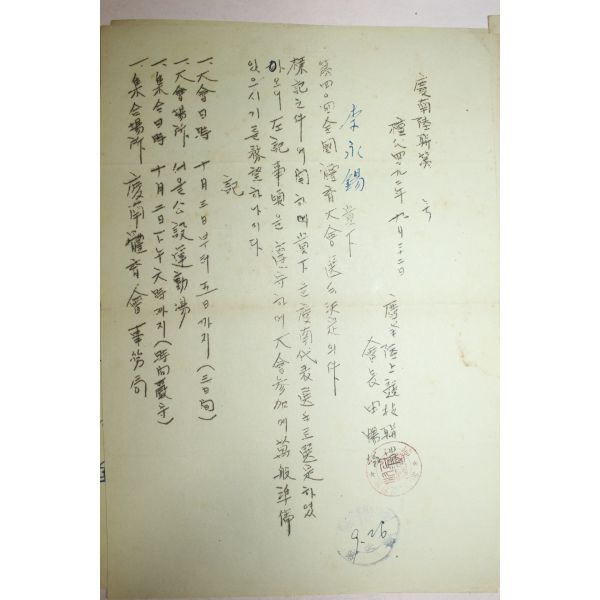 慶南陸聯第 号
檀紀四二九二年 九月二十二日
慶南陸上競技聯盟
會長 田
李永錫 貴下
第四〇回全國體育大會選手決定의件
標記之件에関하여貴下를慶南代表選手로選定하였
아오니左記事項을遵守하며大會參加에萬般準備
있으시기를敬望하나이다
記
一.大會日時 十月三日부터五日까지(三日間)
一.大會場所 서울公設運動場
一.集合日時 十月二日下午六時까지(時間嚴守)
一.集合場所 慶南體育會事務局
9.26